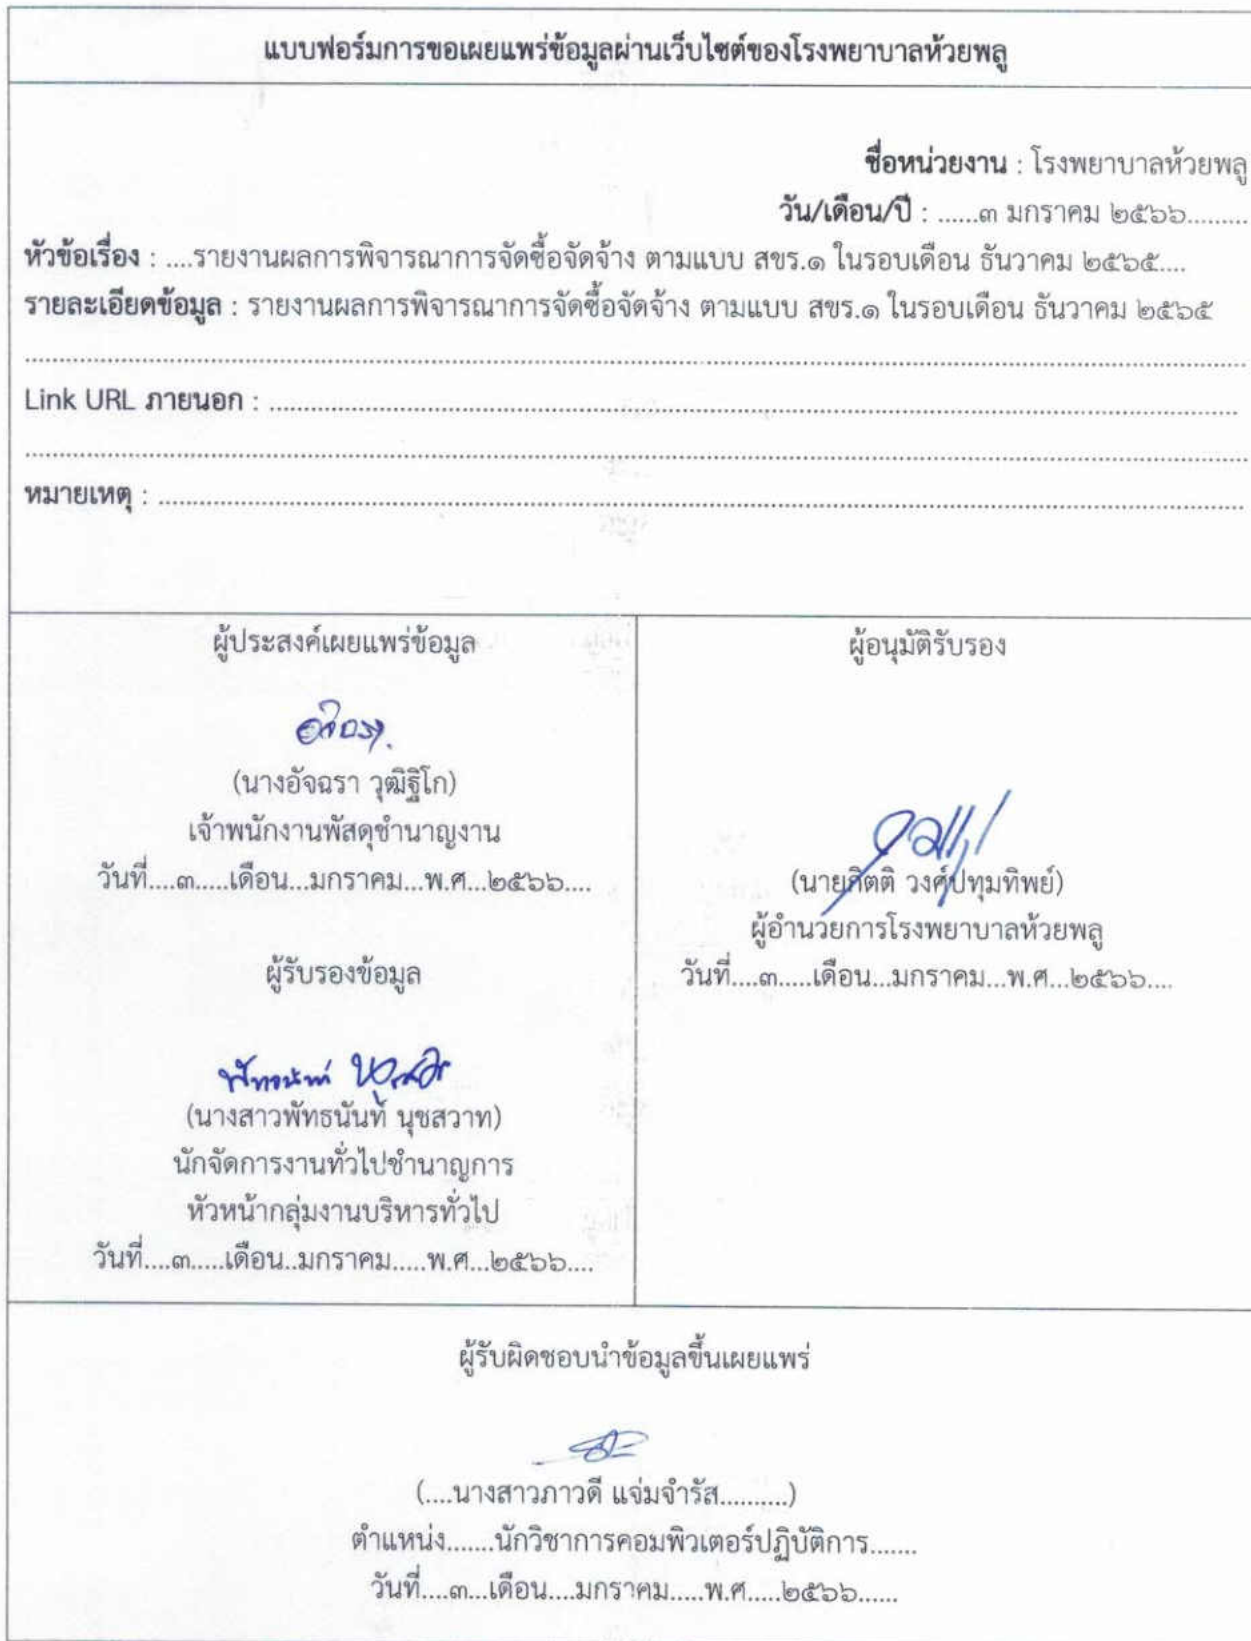 แบบฟอร์มการขอเผยแพร่ข้อมูลผ่านเว็บไซต์ของโรงพยาบาลห้วยพลู
ชื่อหน่วยงาน : โรงพยาบาลห้วยพลู
วัน/เดือน/ปี : ......๓ มกราคม ๒๕๖๖.........
หัวข้อเรื่อง : ....รายงานผลการพิจารณาการจัดซื้อจัดจ้าง ตามแบบ สขร.๑ ในรอบเดือน ธันวาคม ๒๕๖๕....
รายละเอียดข้อมูล : รายงานผลการพิจารณาการจัดซื้อจัดจ้าง ตามแบบ สขร.๑ ในรอบเดือน ธันวาคม ๒๕๖๕
Link URL ภายนอก :
หมายเหตุ :
ผู้ประสงค์เผยแพร่ข้อมูล
อัจฉรา
(นางอัจฉรา วุฒิฐิโก)
เจ้าพนักงานพัสดุชำนาญงาน
วันที่....๓.....เดือน...มกราคม...พ.ศ...๒๕๖๖....
ผู้รับรองข้อมูล
พัทธนันท์ นุชสวาท
(นางสาวพัทธนันท์ นุชสวาท)
นักจัดการงานทั่วไปชำนาญการ
หัวหน้ากลุ่มงานบริหารทั่วไป
วันที่....๓.....เดือน..มกราคม.....พ.ศ...๒๕๖๖....
ผู้อนุมัติรับรอง
(นายกิตติ วงศ์ปทุมทิพย์)
ผู้อำนวยการโรงพยาบาลห้วยพลู
วันที่....๓.....เดือน...มกราคม...พ.ศ...๒๕๖๖....
ผู้รับผิดชอบนำข้อมูลขึ้นเผยแพร่
(....นางสาวภาวดี แจ่มจำรัส..........)
ตำแหน่ง.......นักวิชาการคอมพิวเตอร์ปฏิบัติการ.......
วันที่....๓...เดือน....มกราคม.....พ.ศ.....๒๕๖๖......